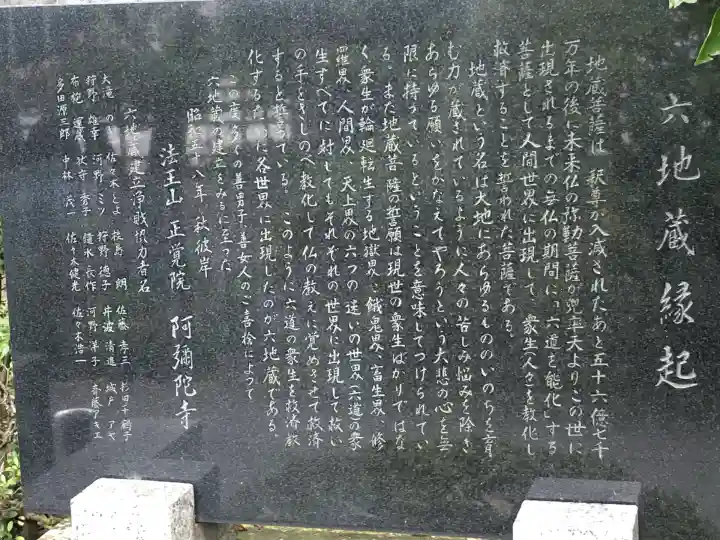 六地蔵縁起
地蔵菩薩は、釈尊が入滅されたあと五十六億七千
万年の後に未来仏の弥勒菩薩が兜率天よりこの世に
出現されるまでの無仏の期間に、「六道を能化」する
菩薩として人間世界に出現して、衆生(人々)を教化し
救済することを誓われた菩薩である。
地蔵という名は大地にあらゆるもののいのちを育
む力が蔵されているように人々の苦しみ悩みを除き
あらゆる願いをかなえてやろうという大悲の心を無
限に持っているということを意味してつけられてい
る。また地蔵菩薩の誓願は現世の衆生ばかりではな
く衆生が輪廻転生する地獄界、餓鬼界、畜生界、修
羅界、人間界、天上界の六つの迷いの世界(六道)の衆
生すべてに対してもそれぞれの世界に出現して救い
の手をさしのべ教化して仏の教えに覚めさせて救済
すると誓っている。このように六道の衆生を救済教
化するために各世界に出現したのが六地蔵である。
この度多くの善男子、善女人のご喜捨によって
六地蔵の建立をみるに至った
昭和五十八年 秋彼岸
法王山 正覚院 阿彌陀寺
六地蔵建立浄財協力者名
大滝 のき 佐々木とよ 牧島 朗 佐藤孝三 杉田千鶴子
狩野雄幸 河野ミツ 狩野徳子 井波清進 城戸アヤ
布施運蔵 秋守秀子 清水長作 河野洋子 斉藤アキエ
多田源三郎 中林茂一 佐々木健光 佐々木浩一